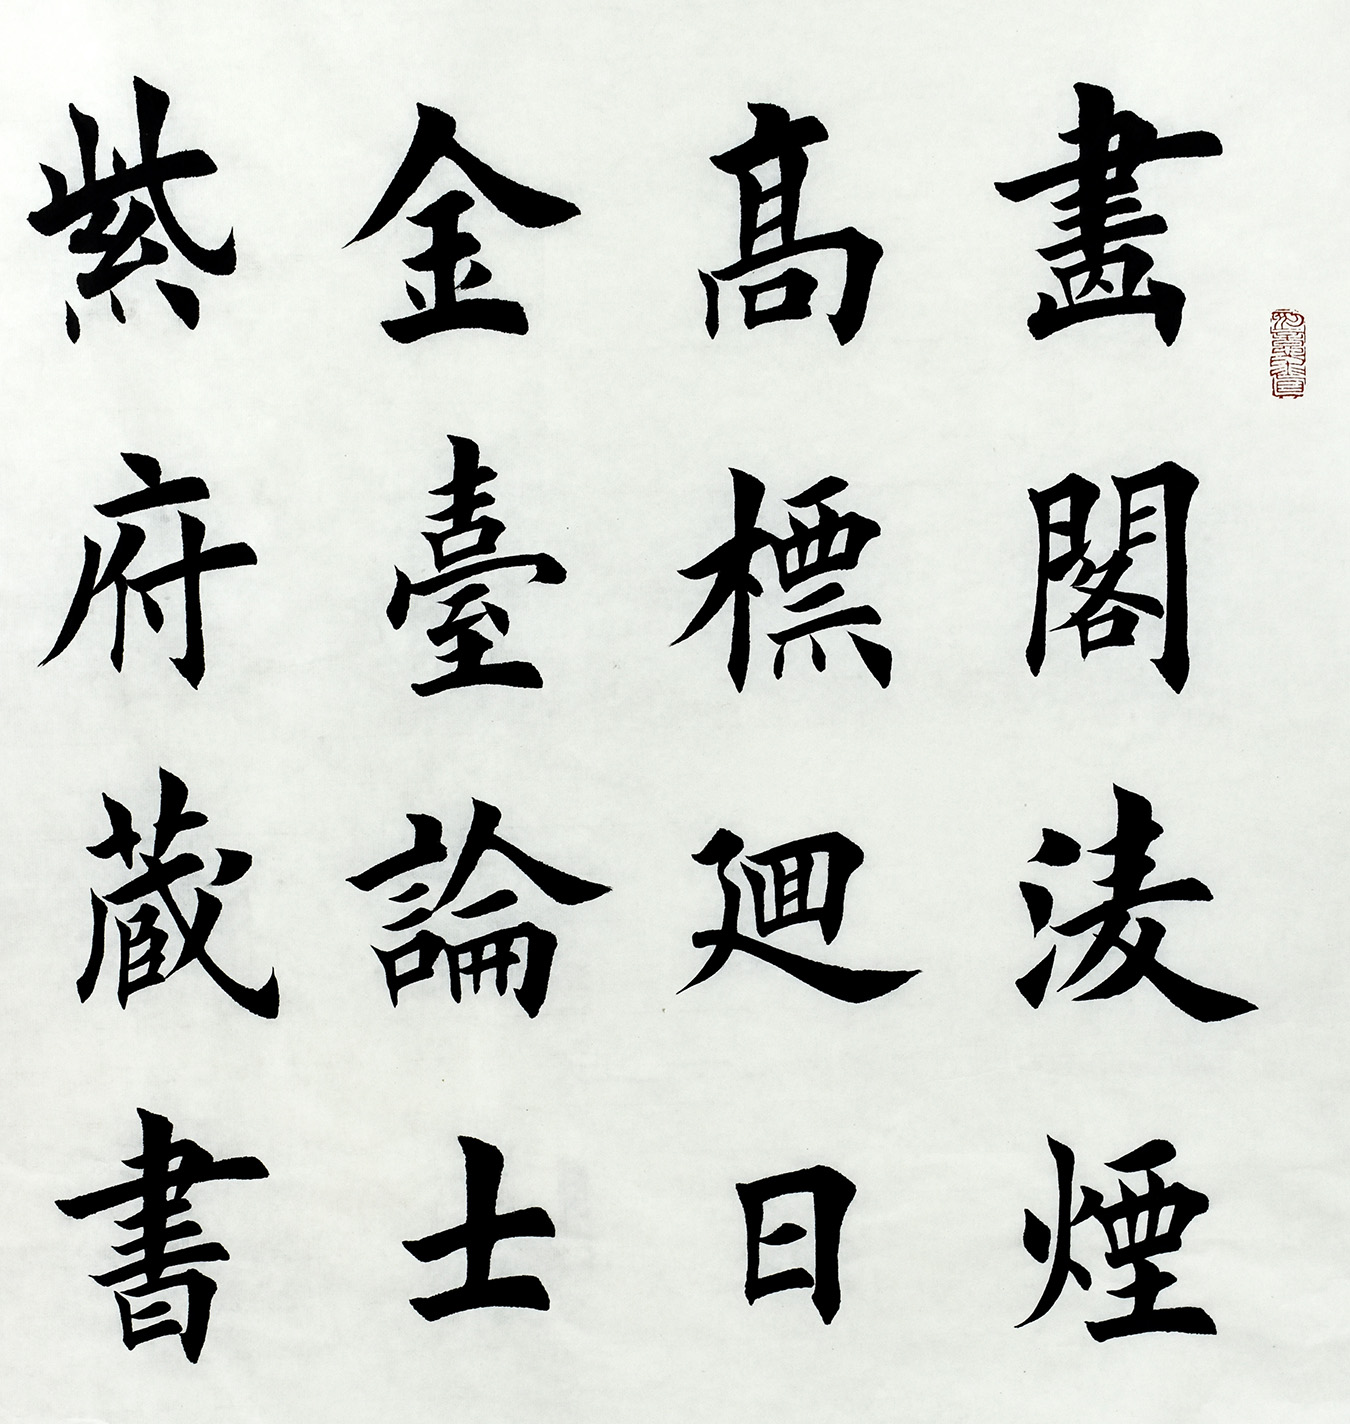 畫閣淩煙
髙標迴日
金臺論士
紫府蔵書